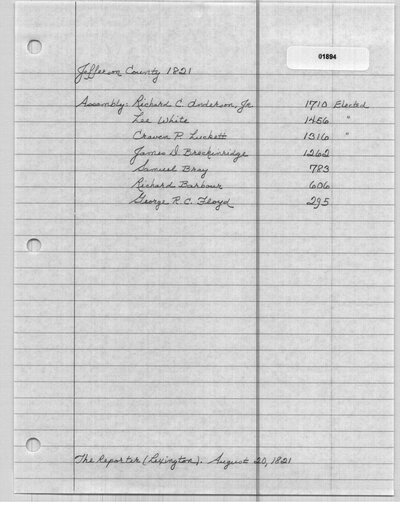 01894
Jefferson County 1821
Assembly: Richard C. Anderson, Jr. 1710 Elected
Lee White 1456 "
Craven P. Luckett 1316 "
James D. Breckinridge 1262
Samuel Bray 783
Richard Barbour 606
George R. C. Floyd 295
The Reporter (Lexington). August 20, 1821